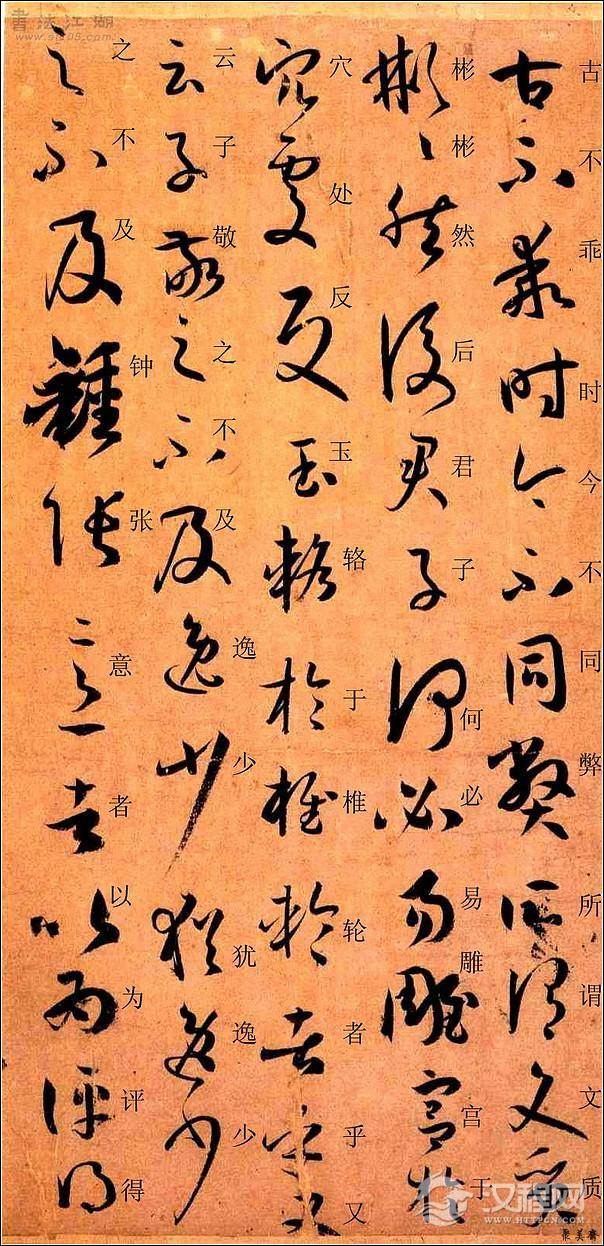 古不乖時今不同弊所謂文質
古不乖时今不同弊所谓文质
彬彬然後君子何必易雕宮於
彬彬然后君子何必易雕宫于
穴處反玉輅於椎輪者乎又
穴处反玉辂于椎轮者乎又
云子敬之不及逸少猶逸少
云子敬之不及逸少犹逸少
之不及鍾張意者以為評得
之不及钟张意者以为评得
書法江湖
汉程网
HTTPCN.COM
聚美齋